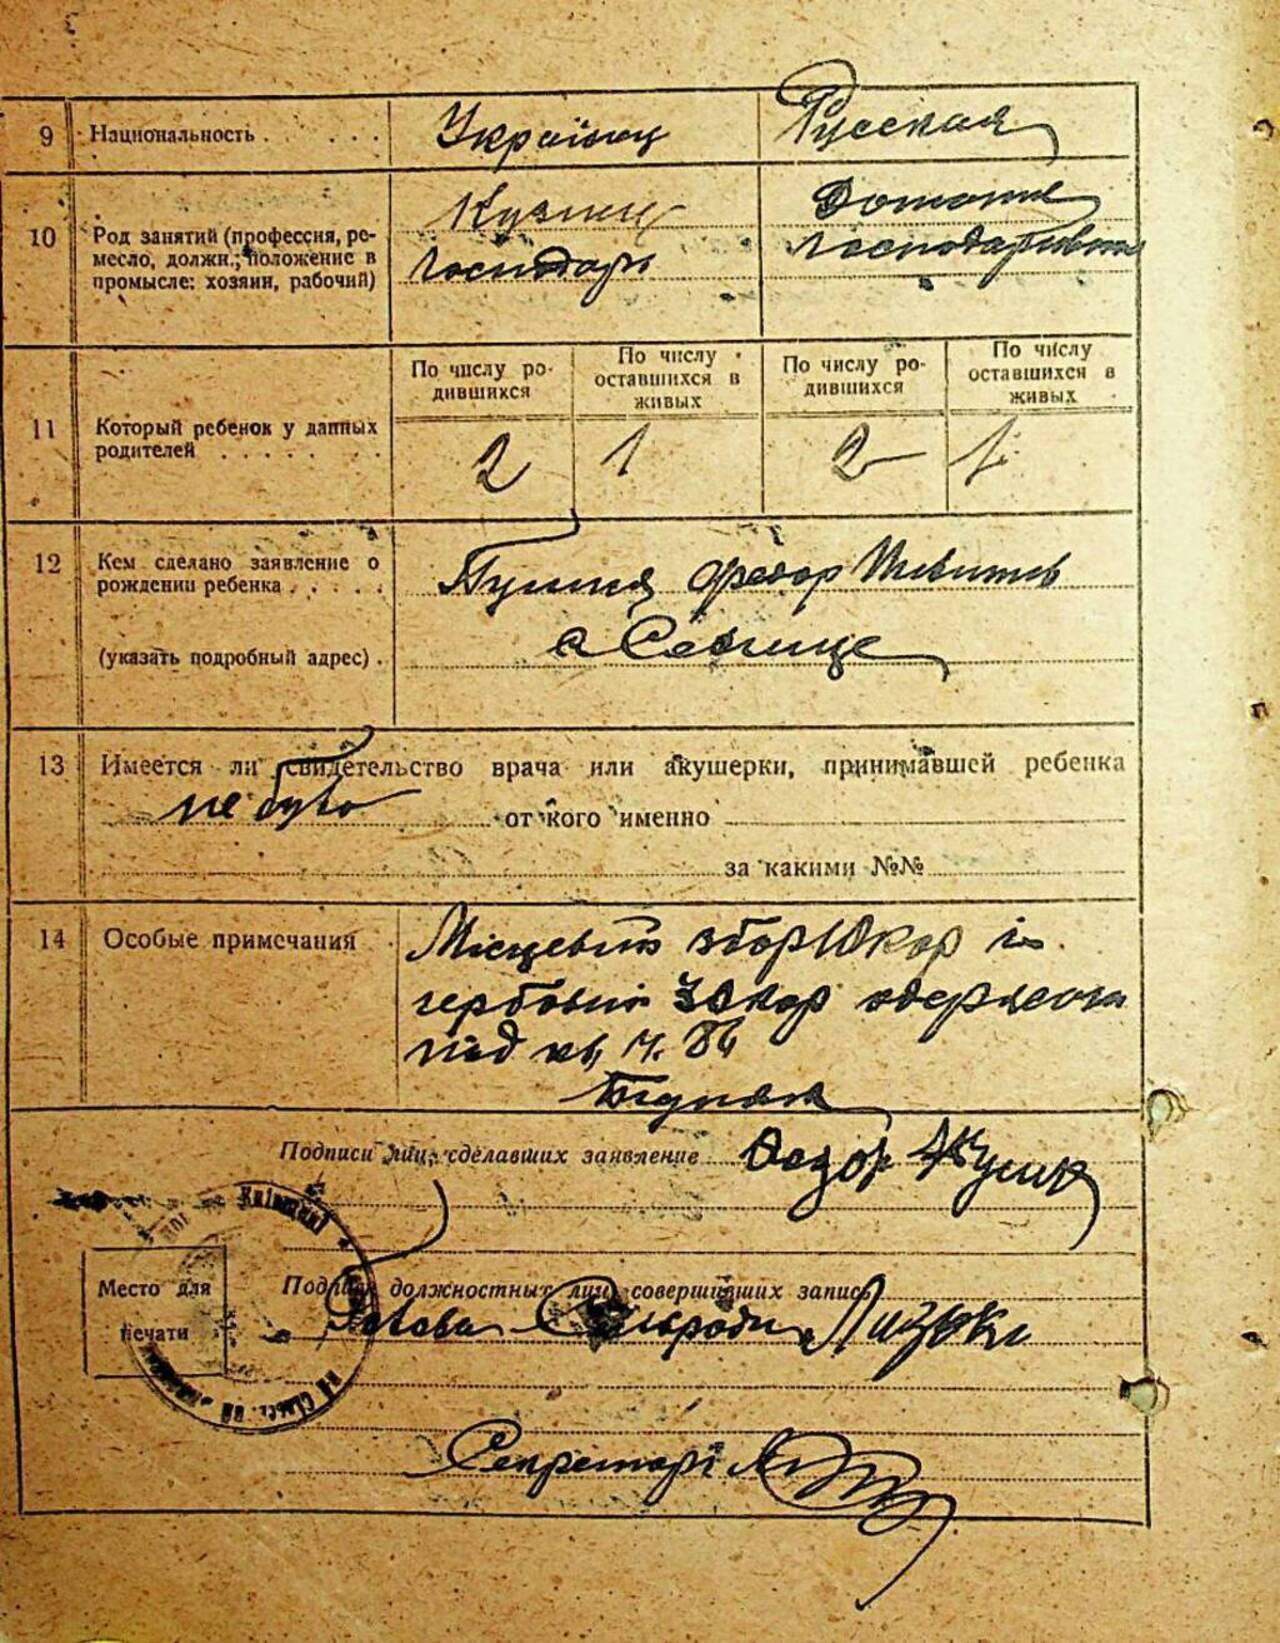 9 Национальность . . . . . Українец Русская
10 Род занятий (профессия, ре-
месло, должн.; положение в
промысле: хозяин, рабочий)
Кузнец
Господарь
Домашнє
11 Который ребенок у данных
родителей . . . . . .
По числу ро-
дившихся
По числу
оставшихся в
живых
По числу ро-
дившихся
По числу
оставшихся в
живых
2 1 2 1
12 Кем сделано заявление о
рождении ребенка . . . . .
(указать подробный адрес) .
13 Имеется ли свидетельство врача или акушерки, принимавшей ребенка
не було от кого именно
за какими №№
14 Особые примечания
Місцевий збор 10 кор і
гербовий 30 кор одержано
під кв. ч. 86
Бедняк
Подписи лиц, сделавших заявление
Место для
печати
Подписи должностных лиц, совершивших запись
Голова Сільради
Секретарь